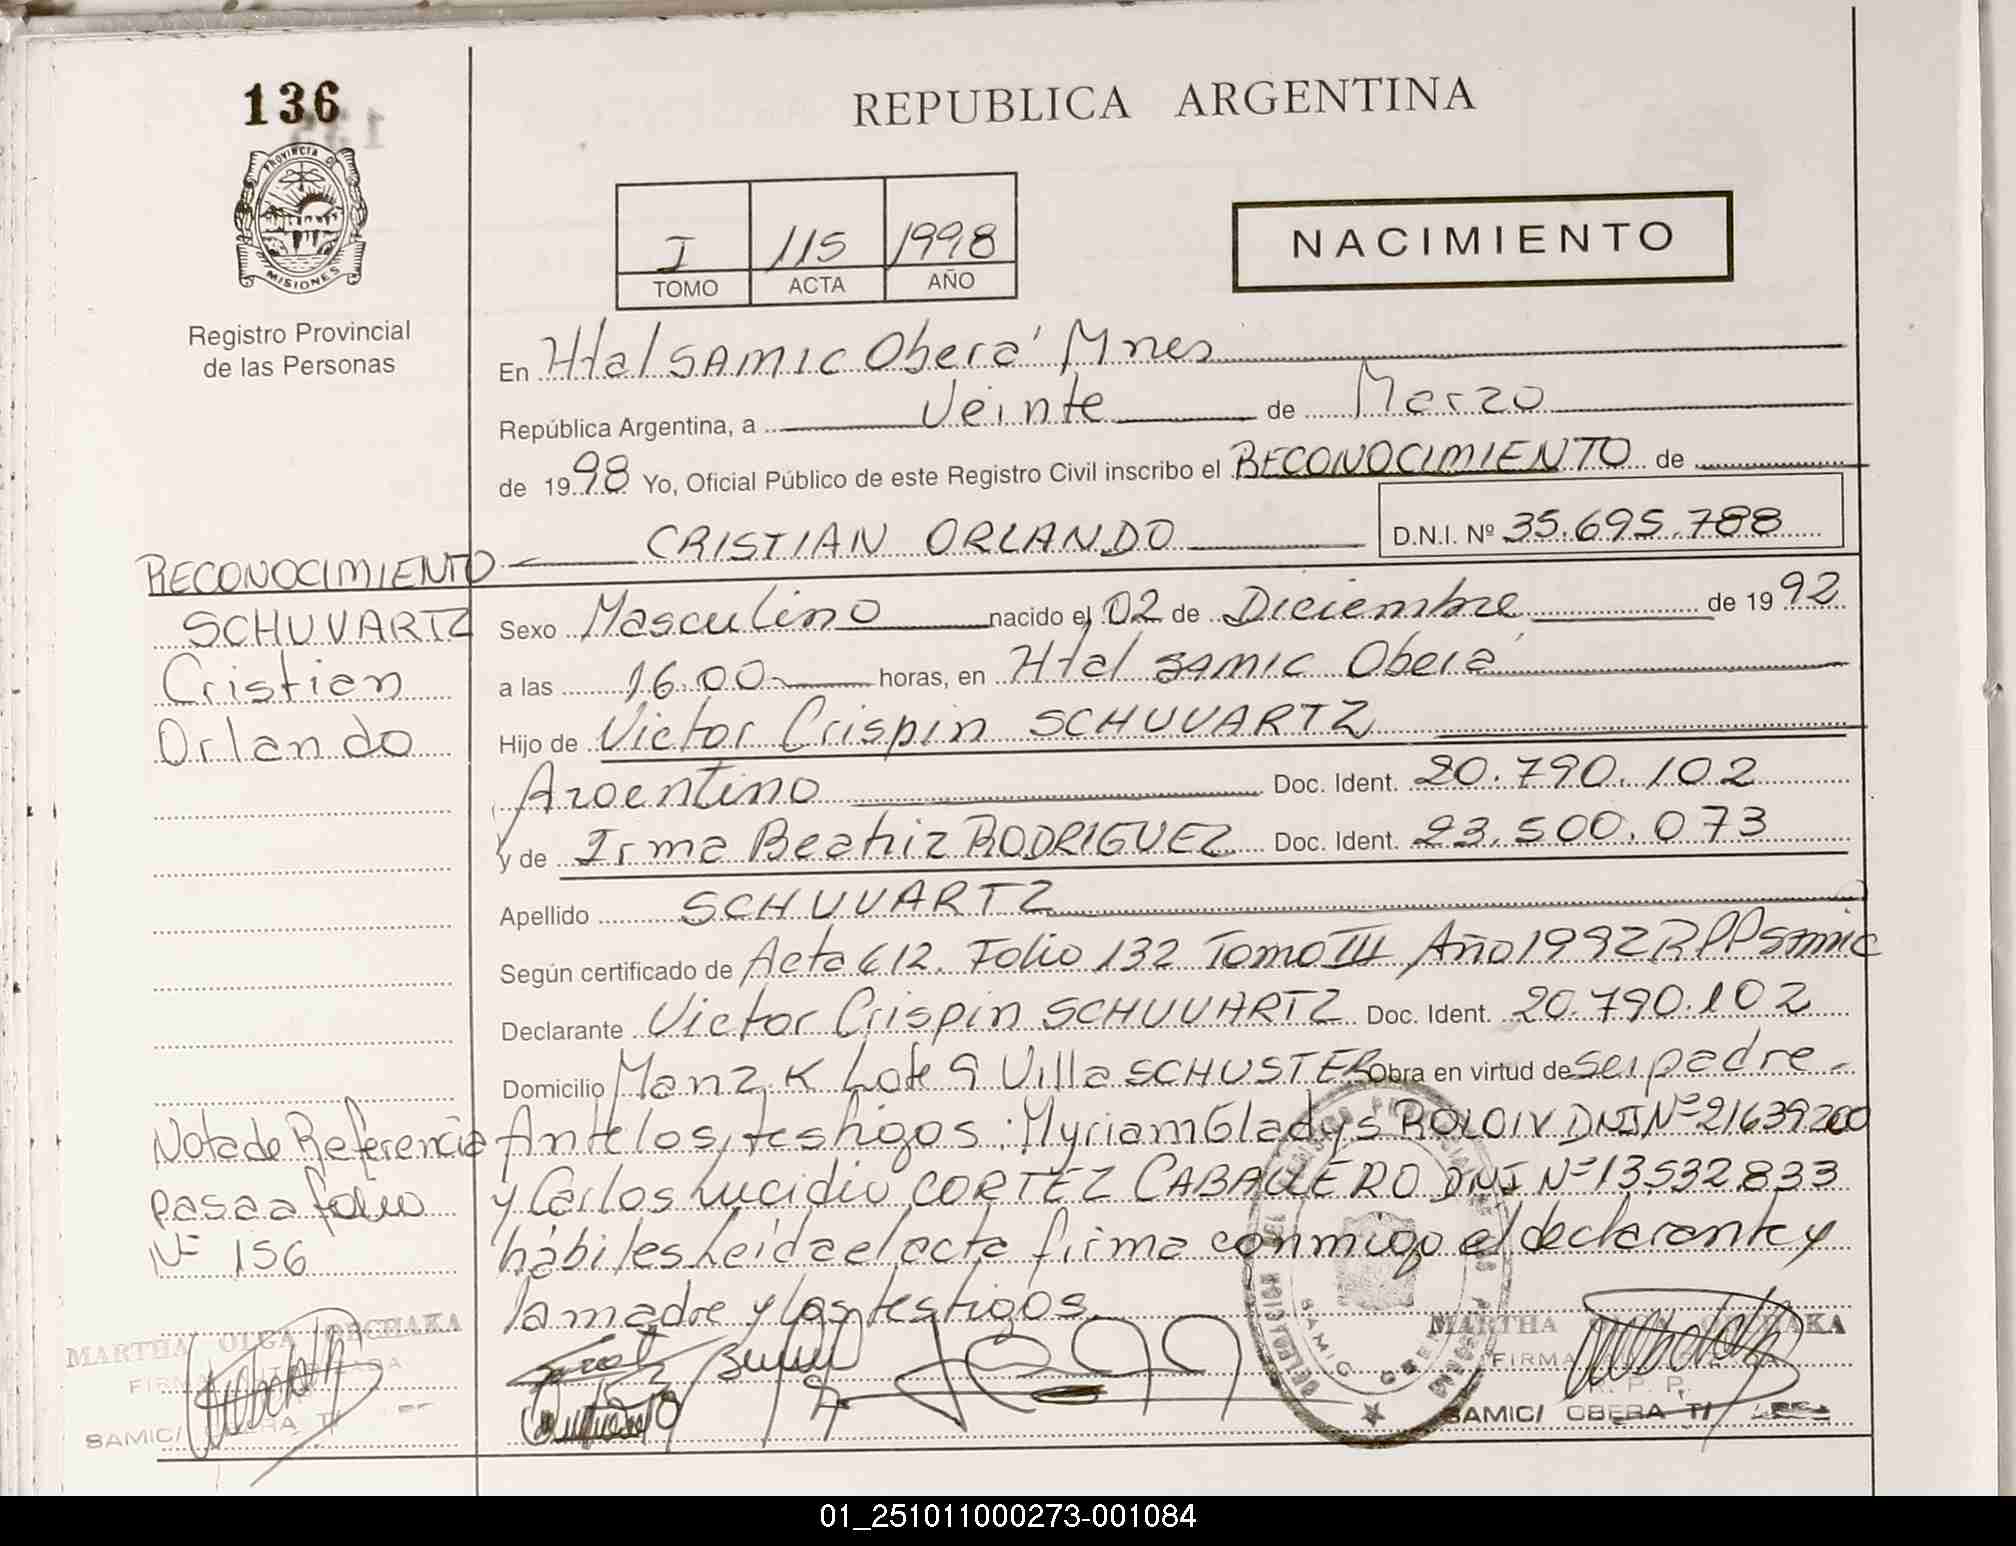 136
REPUBLICA ARGENTINA
PROVINCIA D
MISIONES
Registro Provincial
de las Personas
I 115 1998
TOMO ACTA AÑO
NACIMIENTO
En Htal SAMIC Oberá Mnes
República Argentina, a Veinte de Marzo
de 1998 Yo, Oficial Público de este Registro Civil inscribo el RECONOCIMIENTO de
CRISTIAN ORLANDO D.N.I. Nº 35.695.788
RECONOCIMIENTO
SCHUVARTZ
Cristian
Orlando
Sexo Masculino nacido el 02 de Diciembre de 1992
a las 16.00 horas, en Htal SAMIC Oberá
Hijo de Victor Crispin SCHUVARTZ
Argentino Doc. Ident. 20.790.102
y de Irma Beatriz RODRIGUEZ Doc. Ident. 23.500.073
Apellido SCHUVARTZ
Según certificado de Acta 612. Folio 132 Tomo III Año 1992 RPP Samic
Declarante Victor Crispin SCHUVARTZ Doc. Ident. 20.790.102
Domicilio Manz K Lote 9 Villa SCHUSTER Obra en virtud de ser padre.
Nota de Referencia
pasa a folio
Nº 156
Ante los testigos: Myriam Gladys DNI Nº 21639200
y Carlos Lucidio CORTEZ CABALLERO DNI Nº 13532833
hábiles Leída el acta firma conmigo el declarante y
la madre y los testigos.
MARTHA OLGA
SAMIC/ OBERA
MARTHA
FIRMA
R. P. P.
SAMIC/ OBERA
01_251011000273-001084